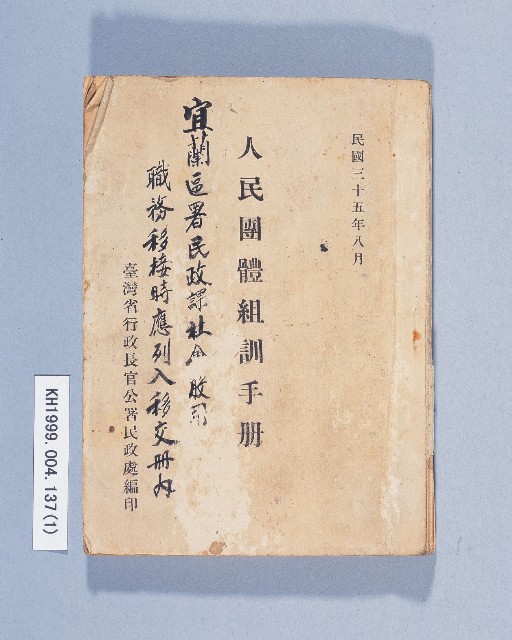 民國三十五年八月
人民團體組訓手册
宜蘭區署民政課社會股用
職務移接時應列入移交册內
臺灣省行政長官公署民政處編印
KH1999.004.137(1)